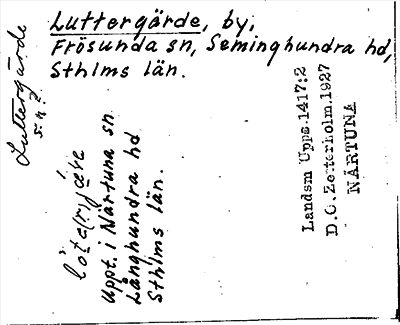 Luttergärde, by,
Frösunda sn, Seminghundra hd,
Sthlms län.
Luttergärde
s.n.?
Uppt. i Närtuna sn
Långhundra hd
Sthlms län.
Landsm Upps.1417:2
D.O.Zetterholm.1927
NÄRTUNA